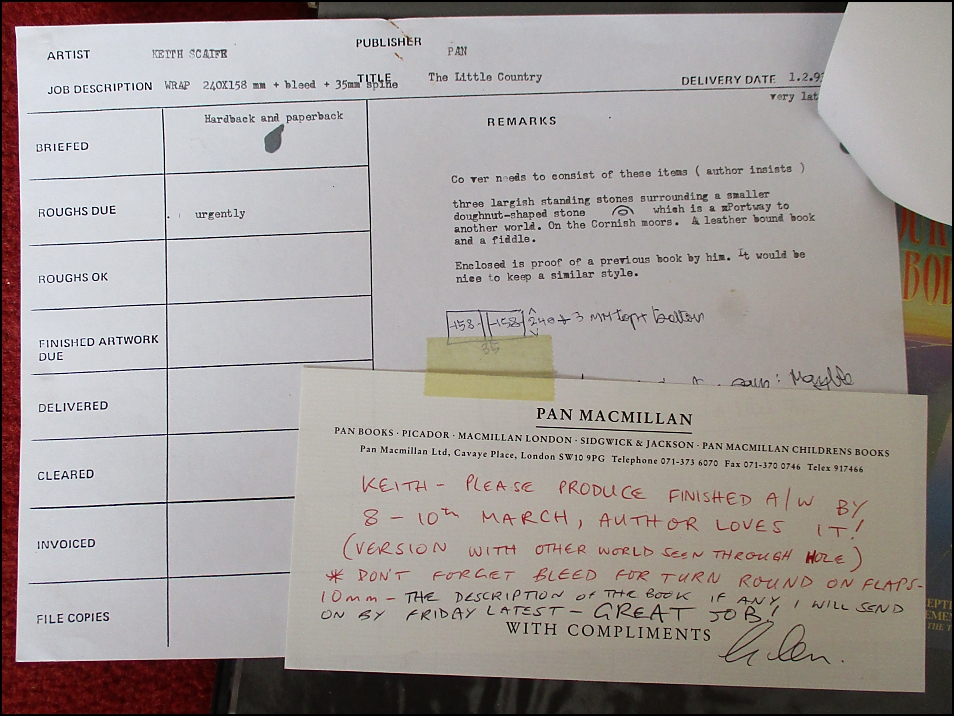 ARTIST KEITH SCAIFE PUBLISHER PAN
JOB DESCRIPTION WRAP 240X158 mm + bleed + 35mm spine TITLE The Little Country DELIVERY DATE 1.2.9
very lat
Hardback and paperback
REMARKS
BRIEFED
ROUGHS DUE urgently
ROUGHS OK
FINISHED ARTWORK
DUE
DELIVERED
CLEARED
INVOICED
FILE COPIES
Co ver needs to consist of these items ( author insists )
three largish standing stones surrounding a smaller
doughnut-shaped stone which is a xPortway to
another world. On the Cornish moors. A leather bound book
and a fiddle.
Enclosed is proof of a previous book by him. It would be
nice to keep a similar style.
158 158 240 + 3 MM top + bottom
35
PAN MACMILLAN
PAN BOOKS · PICADOR · MACMILLAN LONDON · SIDGWICK & JACKSON · PAN MACMILLAN CHILDRENS BOOKS
Pan Macmillan Ltd, Cavaye Place, London SW10 9PG Telephone 071-373 6070 Fax 071-370 0746 Telex 917466
KEITH - PLEASE PRODUCE FINISHED A/W BY
8 - 10th MARCH, AUTHOR LOVES IT!
(VERSION WITH OTHER WORLD SEEN THROUGH HOLE)
* DON'T FORGET BLEED FOR TURN ROUND ON FLAPS-
10mm - THE DESCRIPTION OF THE BOOK IF ANY, I WILL SEND
ON BY FRIDAY LATEST - GREAT JOB!
WITH COMPLIMENTS